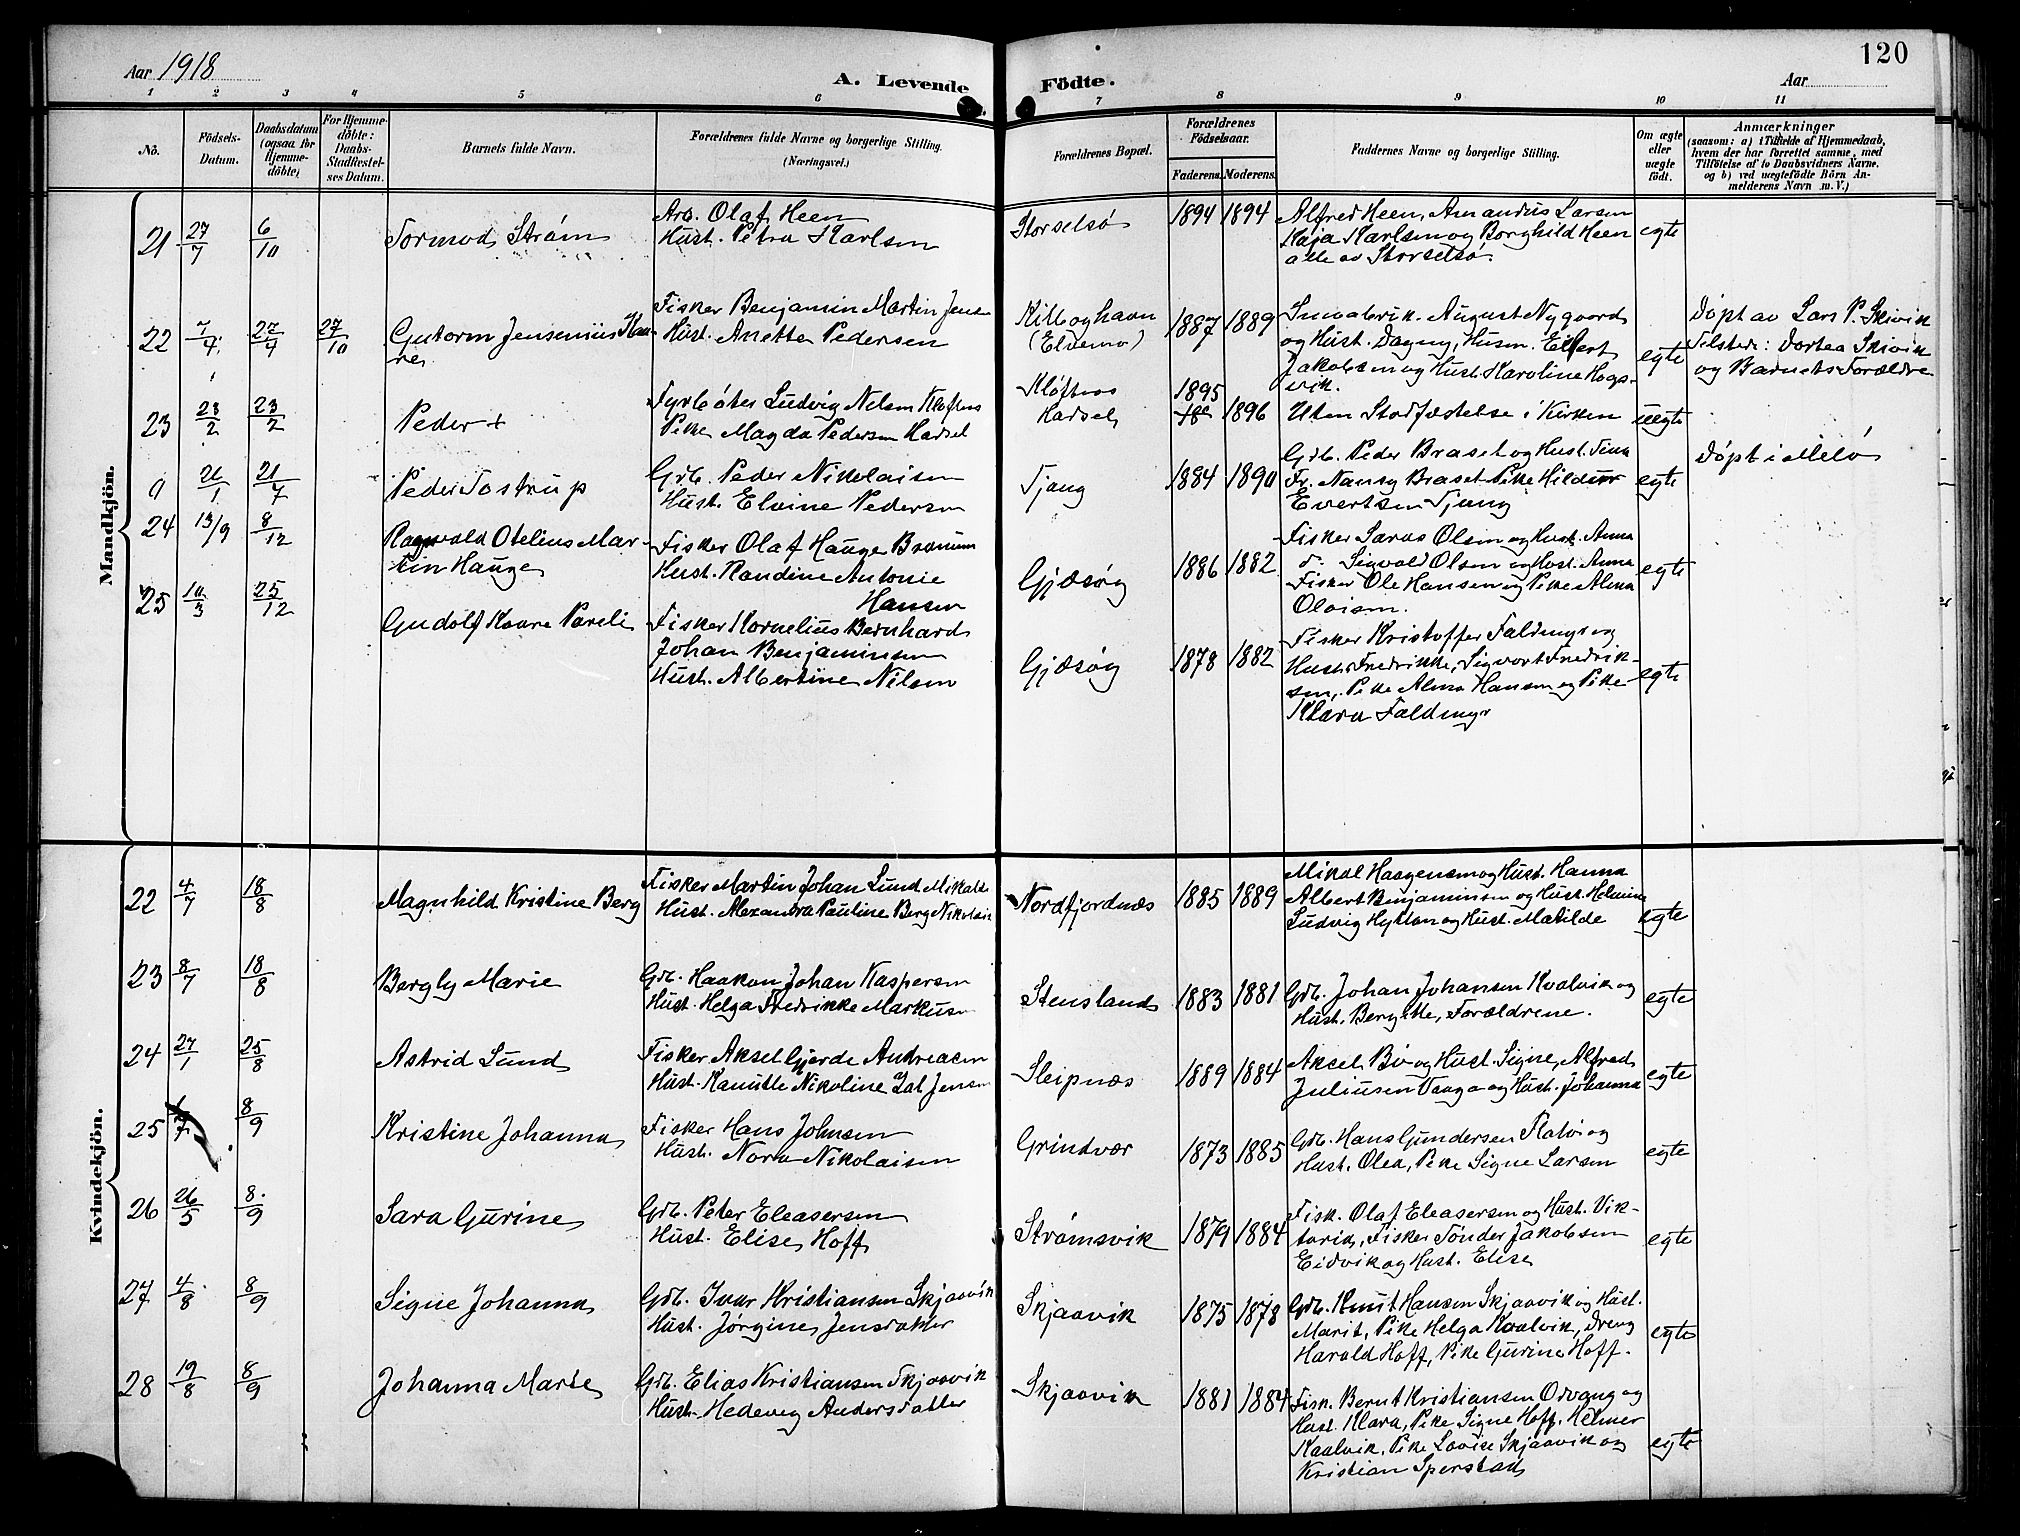 120
Aar 1918
A. Levende Födte.
Aar
1 2 3 4 5 6 7 8 9 10 11
Nô.
Födsels-Datum.
Daabsdatum (ogsaa for Hjemme-döbte)
For Hjemme-döbte: Daabs-Stadfæstel-ses Datum.
Barnets fulde Navn.
Forældrenes fulde Navne og borgerlige Stilling.
(Næringsvei.)
Forældrenes Bopæl.
Forældrenes Födselsaar.
Faderens. Moderens.
Faddernes Navne og borgerlige Stilling.
Om ægte eller uægte födt.
Anmærkninger
(saasom: a) i Tilfælde af Hjemmedaab, hvem der har forrettet samme, med Tilföielse af to Daabsvidners Navne, og b) ved uægtefödte Börn An-melderens Navn m. V.)
Mandkjön.
21 27/7 6/10 Tormod Strøm
Arb. Olaf Heen
Hust. Petra Karlsen
Storselsø 1894 1894
Alfred Heen, Amandus Larsen
Kaja Karlsen og Borghild Heen
alle av Storselsø.
egte
22 7/4 27/4 27/10 Gutorm Jensenius Kaa-
re
Fisker Benjamin Martin Jens
Hust. Anette Pedersen
Kilboghavn
(Elvemo)
1887 1889
August Nygaard
og Hust. Dagny, Husm. Eilert
Jakobsen og Hust. Karoline Hogs-
vik.
egte
Døpt av Lars P. Skivik
Tilstede: Dortea Skivik
og Barnets Forældre
23 23/2 23/2 Peder +
Fyrbøter Ludvig Nelsen Kløfnes
Pike Magda Pedersen Hadsel
Kløfnes
Hadsel
1895
1896
Uten Stadfæstelse i Kirken
uegte
9 21/1 21/7 Peder Tostrup
Grb. Peder Nikolaisen
Hust. Elvine Pedersen
Tjong 1884 1890
Grb. Peder Braset og Hust. Tina
Fr. Nansy Braset Pike Hildur
Evertsen Tjong
egte
Døpt i Melø
24 13/9 8/12 Ragnvald Otelius Mar-
tin Hauge
Fisker Olaf Hauge Branum
Hust. Randine Antonie
Hansen
Gjæsøy 1886 1882
Fisker Laras Olsen og Hust. Anna
d. Sigvald Olsen og Hust. Anna
Fisker Ole Hansen og Pike Alma
Olaisen.
egte
25 10/3 25/12 Gudolf Kaare Pareli
Fisker Kornelius Bernhard
Johan Benjaminsen
Hust. Albertine Nilsen
Gjæsøy 1878 1882
Fisker Kristoffer Faldmyr og
Hust. Fredrikke, Sigvart Fredrik-
sen, Pike Alma Hansen og Pike
Klara Faldmyr
egte
Kvindekjön.
22 4/7 18/8 Magnhild Kristine Berg
Fisker Martin Johan Lund Mikals
Hust. Alexandra Pauline Berg Nikolais
Nordfjordnæs 1885 1889
Mikal Haagensen og Hust. Hanna
Albert Benjaminsen og Hust. Helmine
Ludvig Hytten og Hust. Matilde
egte
23 8/7 18/8 Bergly Marie
Grb. Haakon Johan Kaspersen
Hust. Helga Fredrikke Markusn
Stensland 1883 1881
Grb. Johan Johansen Kvalvik og
Hust. Bergitte, Forældrene.
egte
24 27/1 25/8 Astrid Lund
Fisker Aksel Gjerde Andreasen
Hust. Kanutte Nikoline Jensen
Sleipnæs 1889 1884
Aksel Bø og Hust. Signe, Alfred
Juliusen Vaaga og Hust. Johanna
egte
25 8/9 Kristine Johanna
Fisker Hans Johnsen
Hust. Nora Nikolaisen
Grindvær 1873 1885
Grb. Hans Gundersen Flatø og
Hust. Olea, Pike Signe Larsen
egte
26 26/5 8/9 Sara Gurine
Grb. Peter Eleasersen
Hust. Elise Hoff
Strømsvik 1879 1884
Fisk. Olaf Eleasersen og Hust. Vik-
toria, Fisker Tønder Jakobsen
Eidvik og Hust. Elise
egte
27 4/8 8/9 Signe Johanna
Grb. Ivar Kristiansen Skjaavik
Hust. Jørgine Jensdatter
Skjaavik 1875 1878
Grb. Knut Hansen Skjaavik og Hust.
Marit, Pike Helga Kvalvik, Dreng
Harald Hoff, Pike Gurine Hoff.
egte
28 19/8 8/9 Johanna Marie
Grb. Elias Kristiansen Skjaavik
Hust. Hedevig Andersdatter
Skjaavik 1881 1884
Fisk. Bernt Kristiansen Odvang og
Hust. Klara, Pike Signe Hoff, Helmer
Kvalvik, Pike Lovise Skjaavik og
Kristian Sperstad
egte